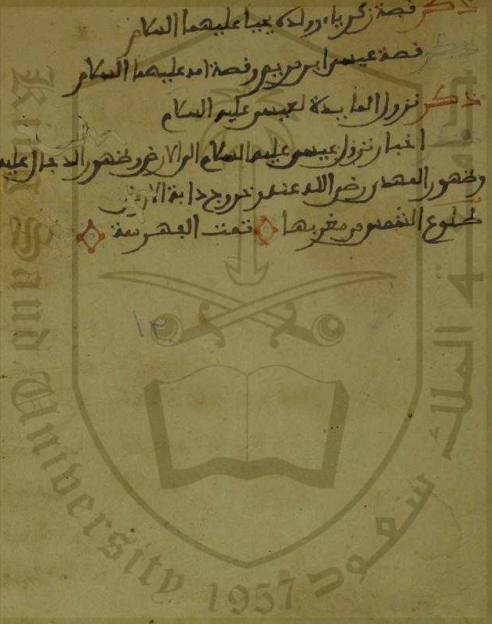 ذكر قصة زكرياء وولده يحيا عليهما السلام
ذكر قصة عيسى ابن مريم وقصة امه عليهما السلام
ذكر نزول المايدة لعيسى عليه السلام
اخبار نزول عيسى عليه السلام الى الارض وظهور الدجال عليه
وظهور المهدي رضي الله عنه وخروج دابة الارض
طلوع الشمس من مغربها تمت الفهرسة
١٢
King Saud University 1957
جامعة الملك سعود